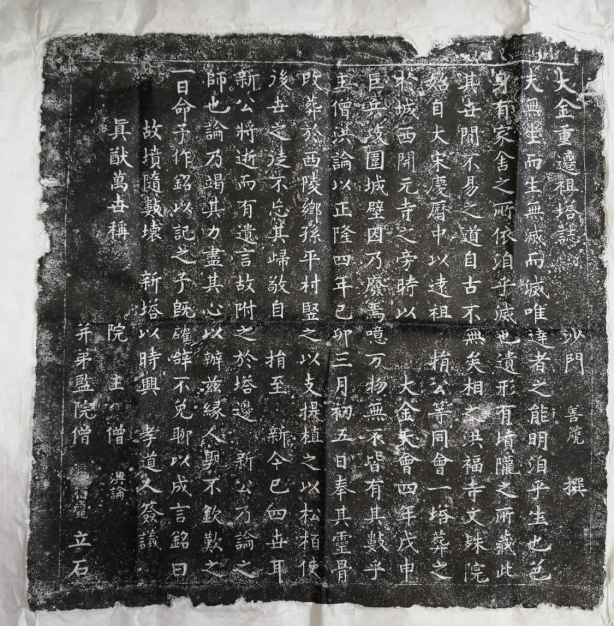 大金重遷祖塔誌 沙門 善 撰
夫無生而生無滅而滅唯達者之能明洎乎生也色
身有家舍之所依洎乎滅也遺形有墳隴之所藏此
其世間不易之道自古不無矣相之洪福寺文殊院
始自大宋慶曆中以遠祖 公等同會一塔葬之
於城西開元寺之旁時以 大金天會四年戊申
巨兵攻圍城壁因乃廢焉噫万物無不皆有其數乎
主僧洪論以正隆四年己卯三月初五日奉其靈骨
改葬於西陵鄉孫平村竪之以支提植之以松栢使
後世之徒不忘其歸敬自 至 新今已四世耳
新公將逝而有遺言故附之於塔邊 新公乃論之
師也論乃竭其力盡其心以辦茲緣人與不欽歎之
一日命予作銘以記之予旣確辞不免聊以成言銘曰
故墳隨數壞 新塔以時興 孝道人僉議
眞猷萬世稱 院主僧 洪論
并弟監院僧 立石